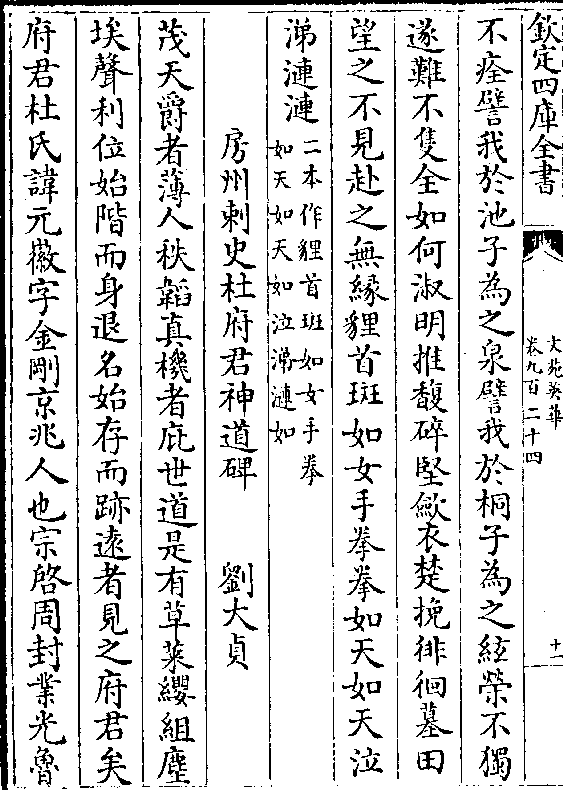 欽定四庫全書
文苑英華
卷九百二十四
十一
不痊譬我於池子為之泉譬我於桐子為之絃榮不獨
遂難不隻全如何淑明推馥碎堅歛衣楚挽徘徊墓田
望之不見赴之無緣貍首斑如女手拳拳如天如天泣
涕漣漣二本作貍首班如女手拳
如天如天如泣涕漣如
房州刺史杜府君神道碑　劉大貞
茂天爵者薄人秩韜真機者庇世道是有草萊纓組塵
埃聲利位始階而身退名始存而跡逺者見之府君矣
府君杜氏諱元徽字金剛京兆人也宗啓周封業光魯